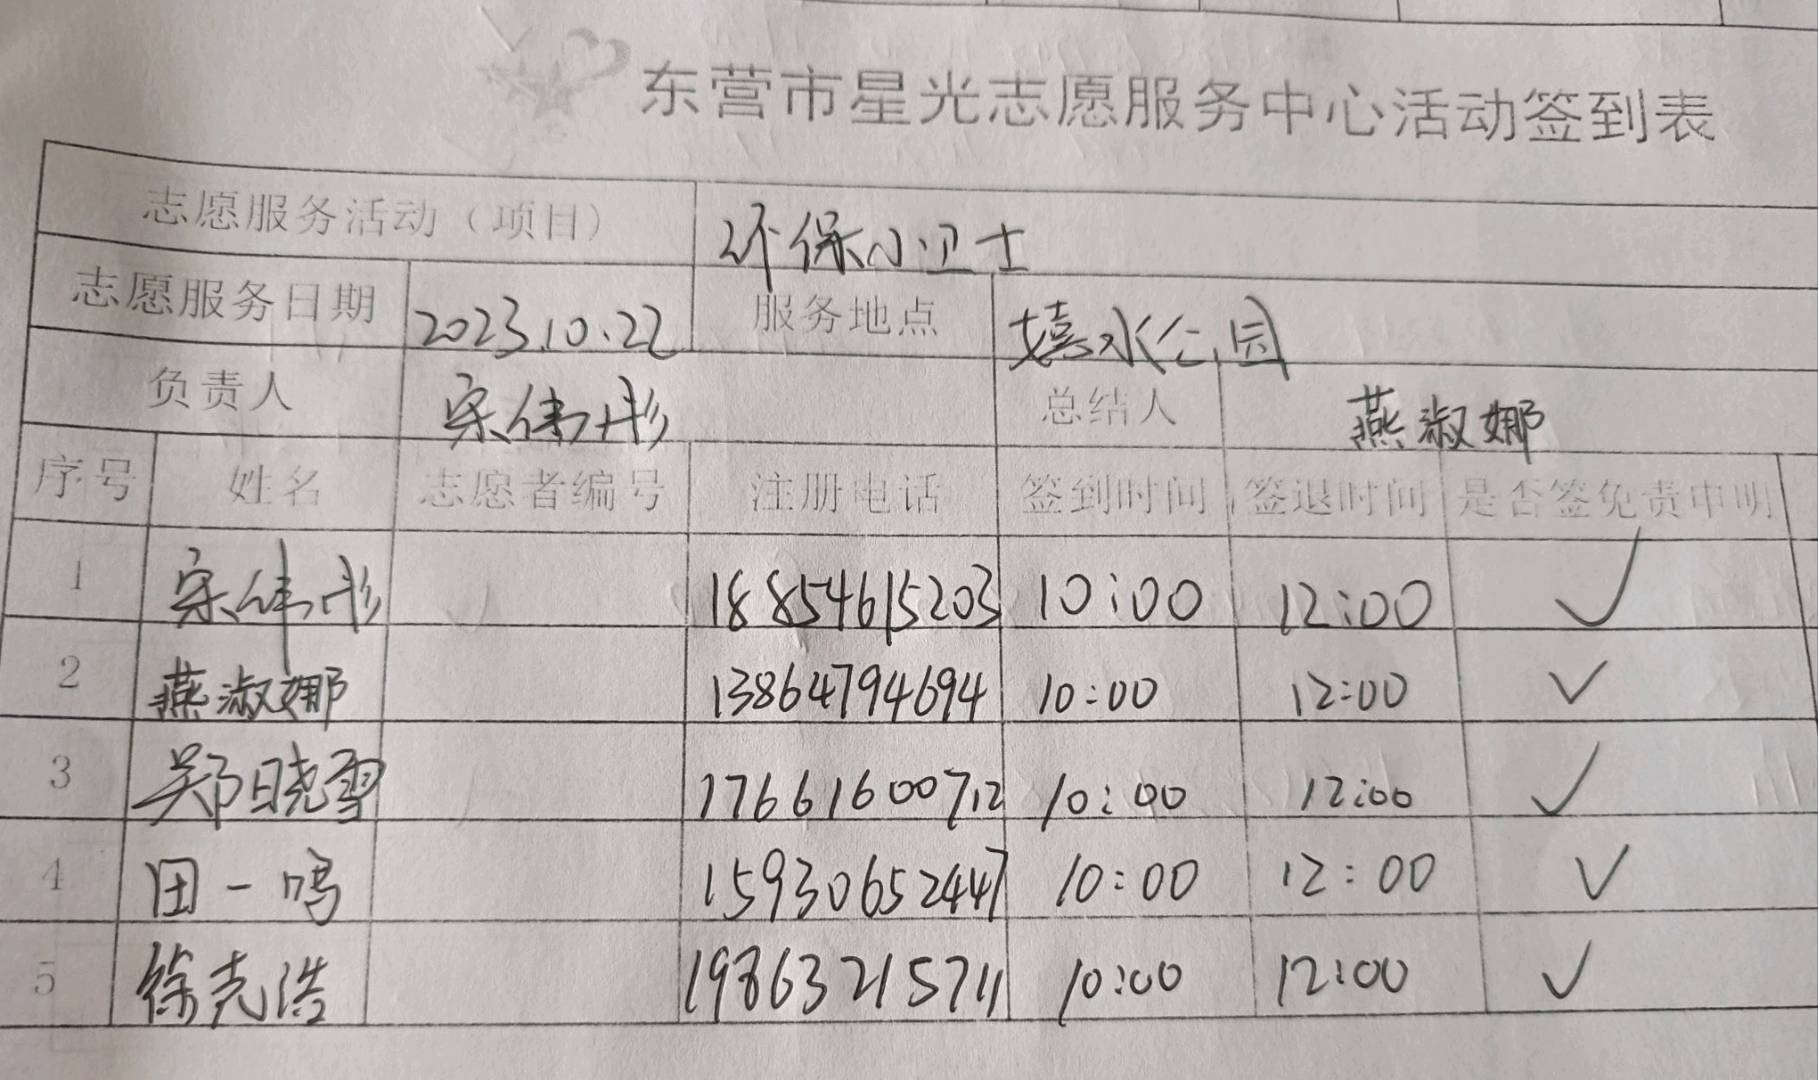 东营市星光志愿服务中心活动签到表
志愿服务活动（项目） 环保小卫士
志愿服务日期 2023.10.22 服务地点 嬉水公园
负责人 宋伟彤 总结人 燕淑娜
序号 姓名 志愿者编号 注册电话 签到时间 签退时间 是否签免责申明
1 宋伟彤 18854615203 10:00 12:00 ✓
2 燕淑娜 13864794694 10:00 12:00 ✓
3 郑晓雪 17661600712 10:00 12:00 ✓
4 田一鸣 15930652447 10:00 12:00 ✓
5 徐克浩 19863215711 10:00 12:00 ✓